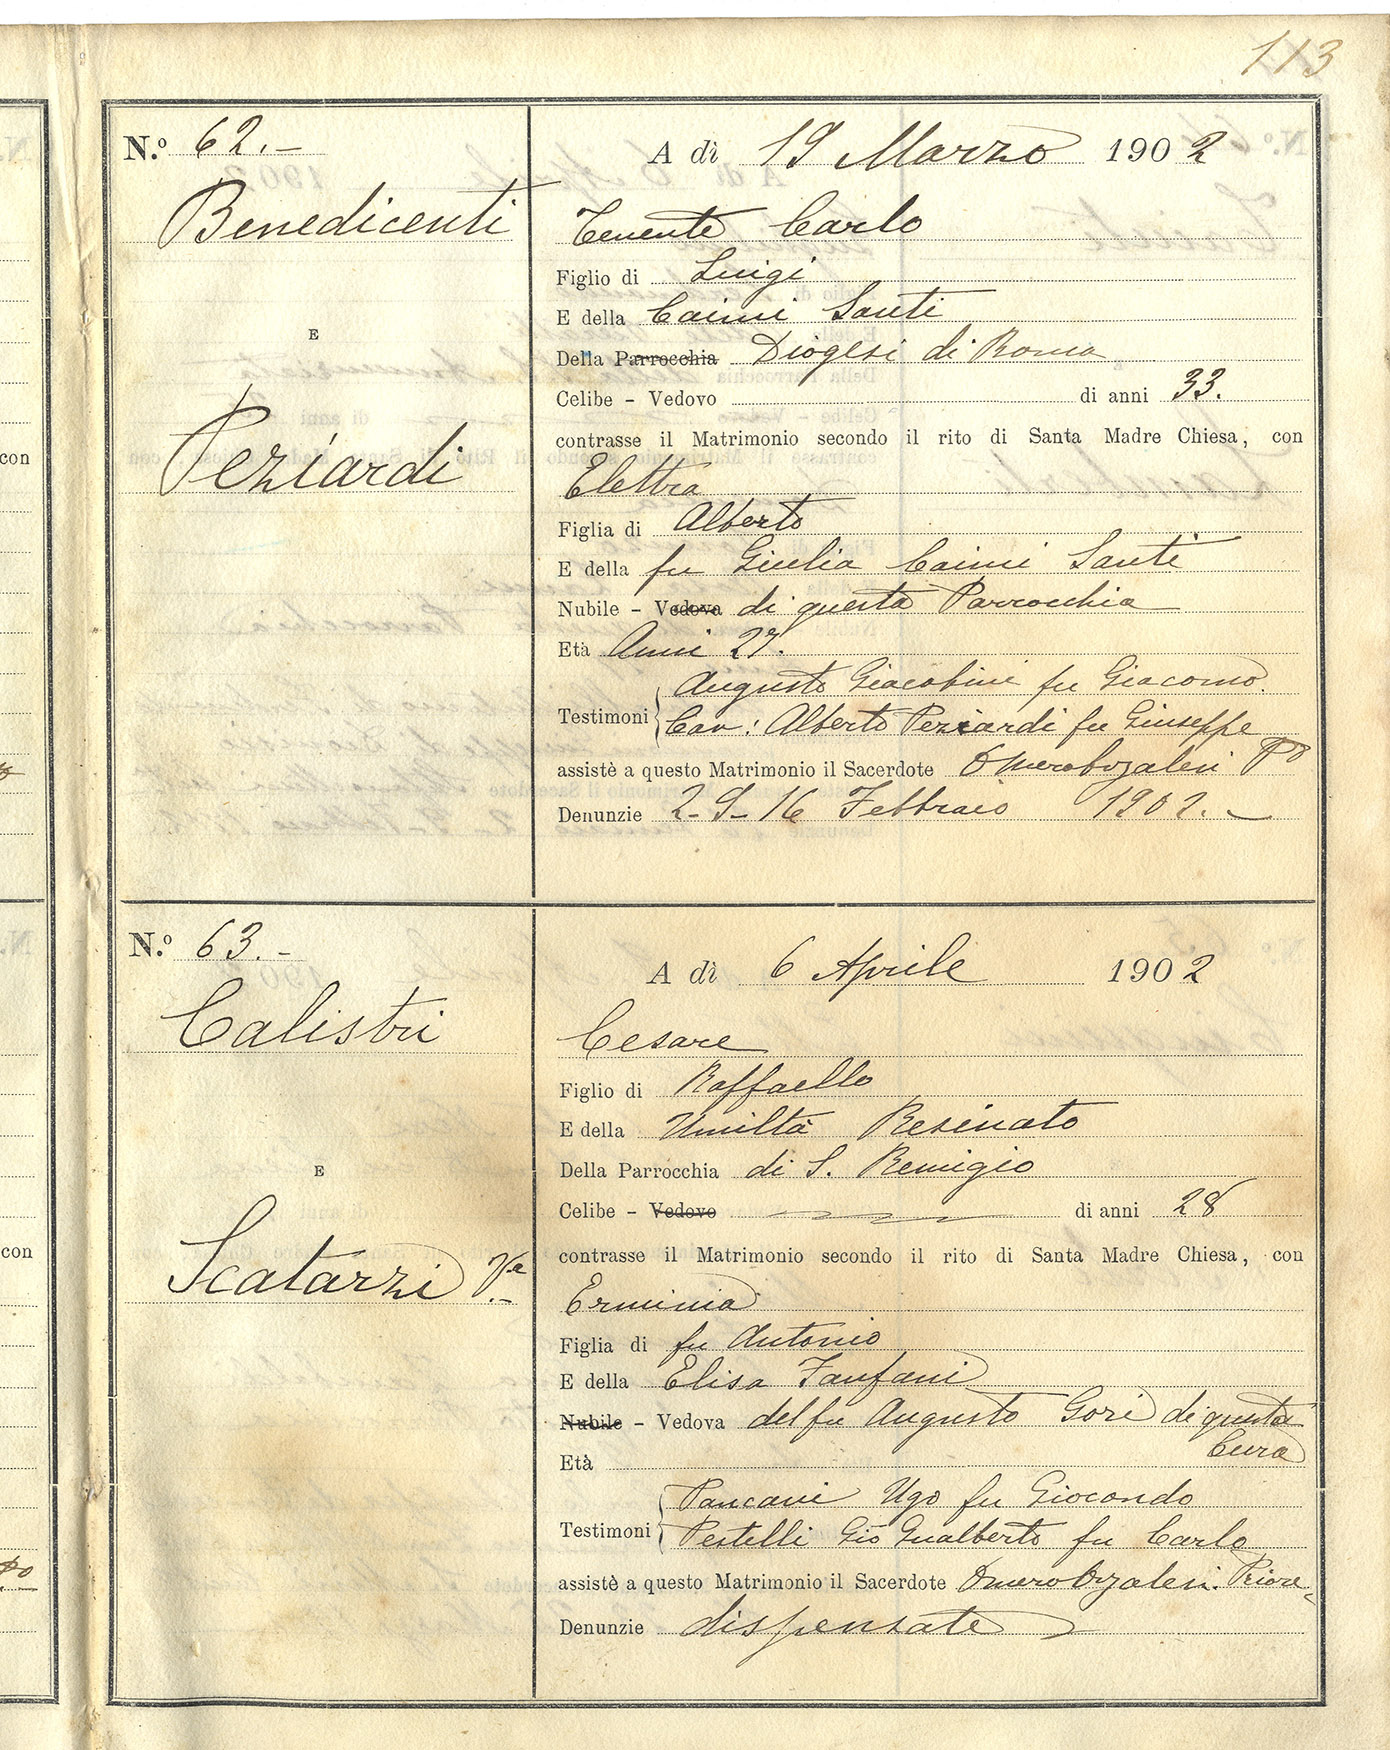 113
N.º 62.-
Benedicenti
E
Peziardi
A dì 19 Marzo 1902
Tenente Carlo
Figlio di Luigi
E della Caimi Santi
Della Parrocchia Diogesi di Roma
Celibe - Vedovo di anni 33.
contrasse il Matrimonio secondo il rito di Santa Madre Chiesa, con
Elettra
Figlia di Alberto
E della fu Giulia Caimi Santi
Nubile - Vedova di questa Parrocchia
Età Anni 27.
Augusto Giacobini fu Giacomo.
Testimoni Cav: Alberto Peziardi fu Giuseppe
assistè a questo Matrimonio il Sacerdote Omero Orzalesi Pº
Denunzie 2-9-16 Febbraio 1902.-
N.º 63.-
Calistri
E
Scatarzi Vª
A dì 6 Aprile 1902
Cesare
Figlio di Raffaello
E della Umiltà Resinato
Della Parrocchia di S. Remigio
Celibe - Vedovo di anni 28
contrasse il Matrimonio secondo il rito di Santa Madre Chiesa, con
Erminia
Figlia di fu Antonio
E della Elisa Fanfani
Nubile - Vedova del fu Augusto Gori di questa
Cura
Età
Pancani Ugo fu Giocondo
Testimoni Pestelli Gio Gualberto fu Carlo
assistè a questo Matrimonio il Sacerdote Omero Orzalesi. Priore
Denunzie dispensate
con
con